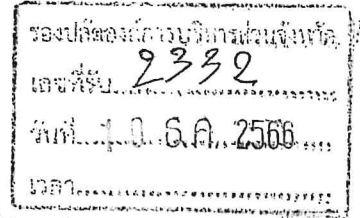 รองปลัดองค์การบริหารส่วนจังหวัด
เลขที่รับ 2332
วันที่ 10 ธ.ค. 2566
เวลา